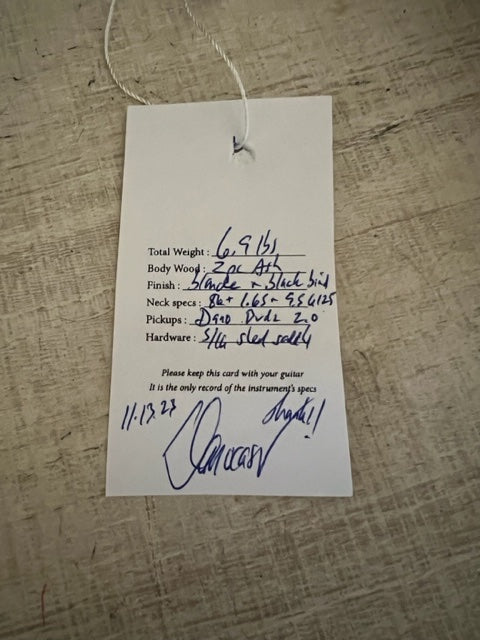 Total Weight : 6.9 lbs
Body Wood : 2 pc Ash
Finish : blonde + black bind
Neck specs : 1.65 9.5 6125
Pickups : Dano 2.0
Hardware :
Please keep this card with your guitar
It is the only record of the instrument's specs
11.13.23 thanks!!
Danocaster